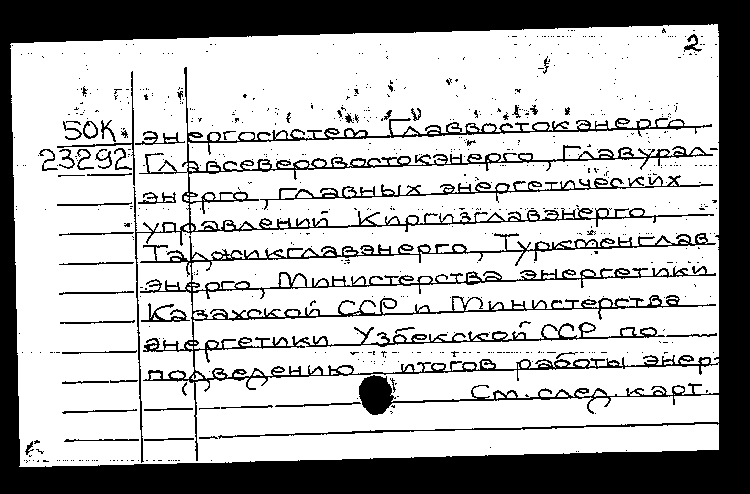 2
50К.
23292
энергосистем Главвостокэнерго,
Главсеверовостокэнерго, Главурал-
энерго, главных энергетических
управлений Киргизглавэнерго,
Таджикглавэнерго, Туркменглав-
энерго, Министерства энергетики
Казахской ССР и Министерства
энергетики Узбекской ССР по
подведению итогов работы энер-
См. след. карт.